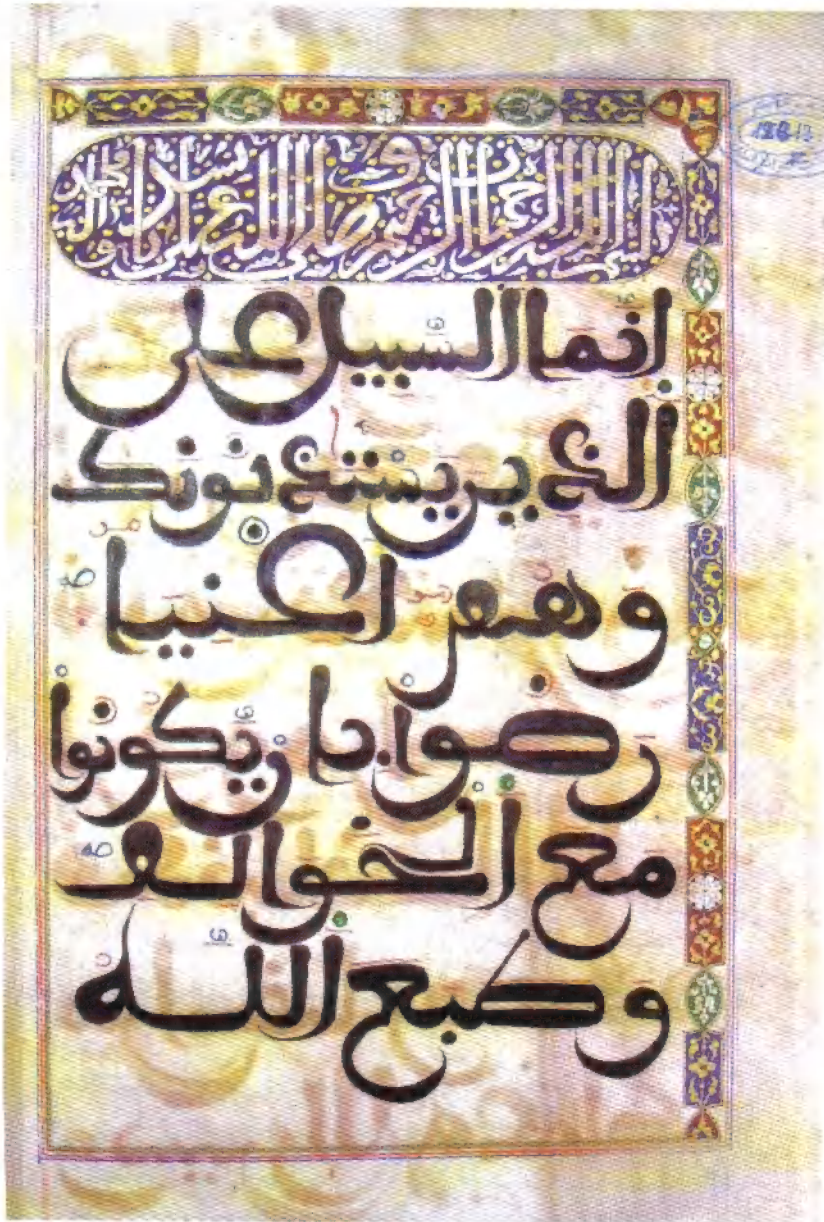 بسم الله الرحمن الرحيم صلى الله على سيدنا
انما السبيل على
الذين يستذنونك
وهم اغنيا
رضوا بان يكونوا
مع الخوالف
وطبع الله